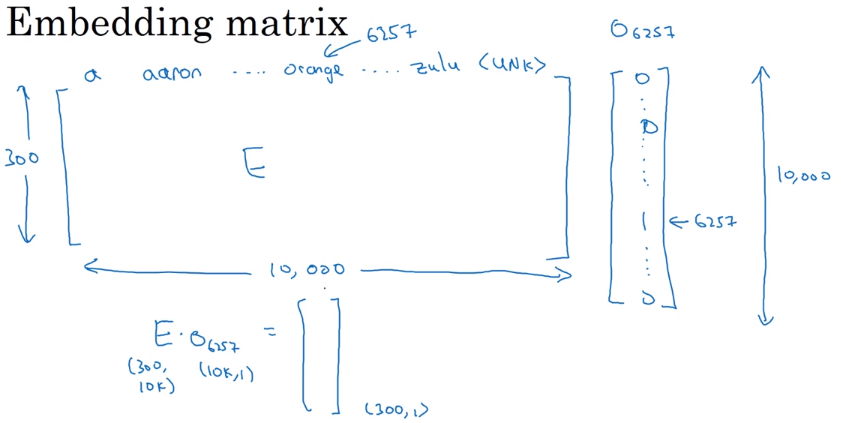 Embedding matrix
6257
O6257
a aaron .... orange .... zulu <UNK>
300
E
0
0
1
0
6257
10,000
10,000
E · O6257 =
(300, 10K)
(10K,1)
(300,1)